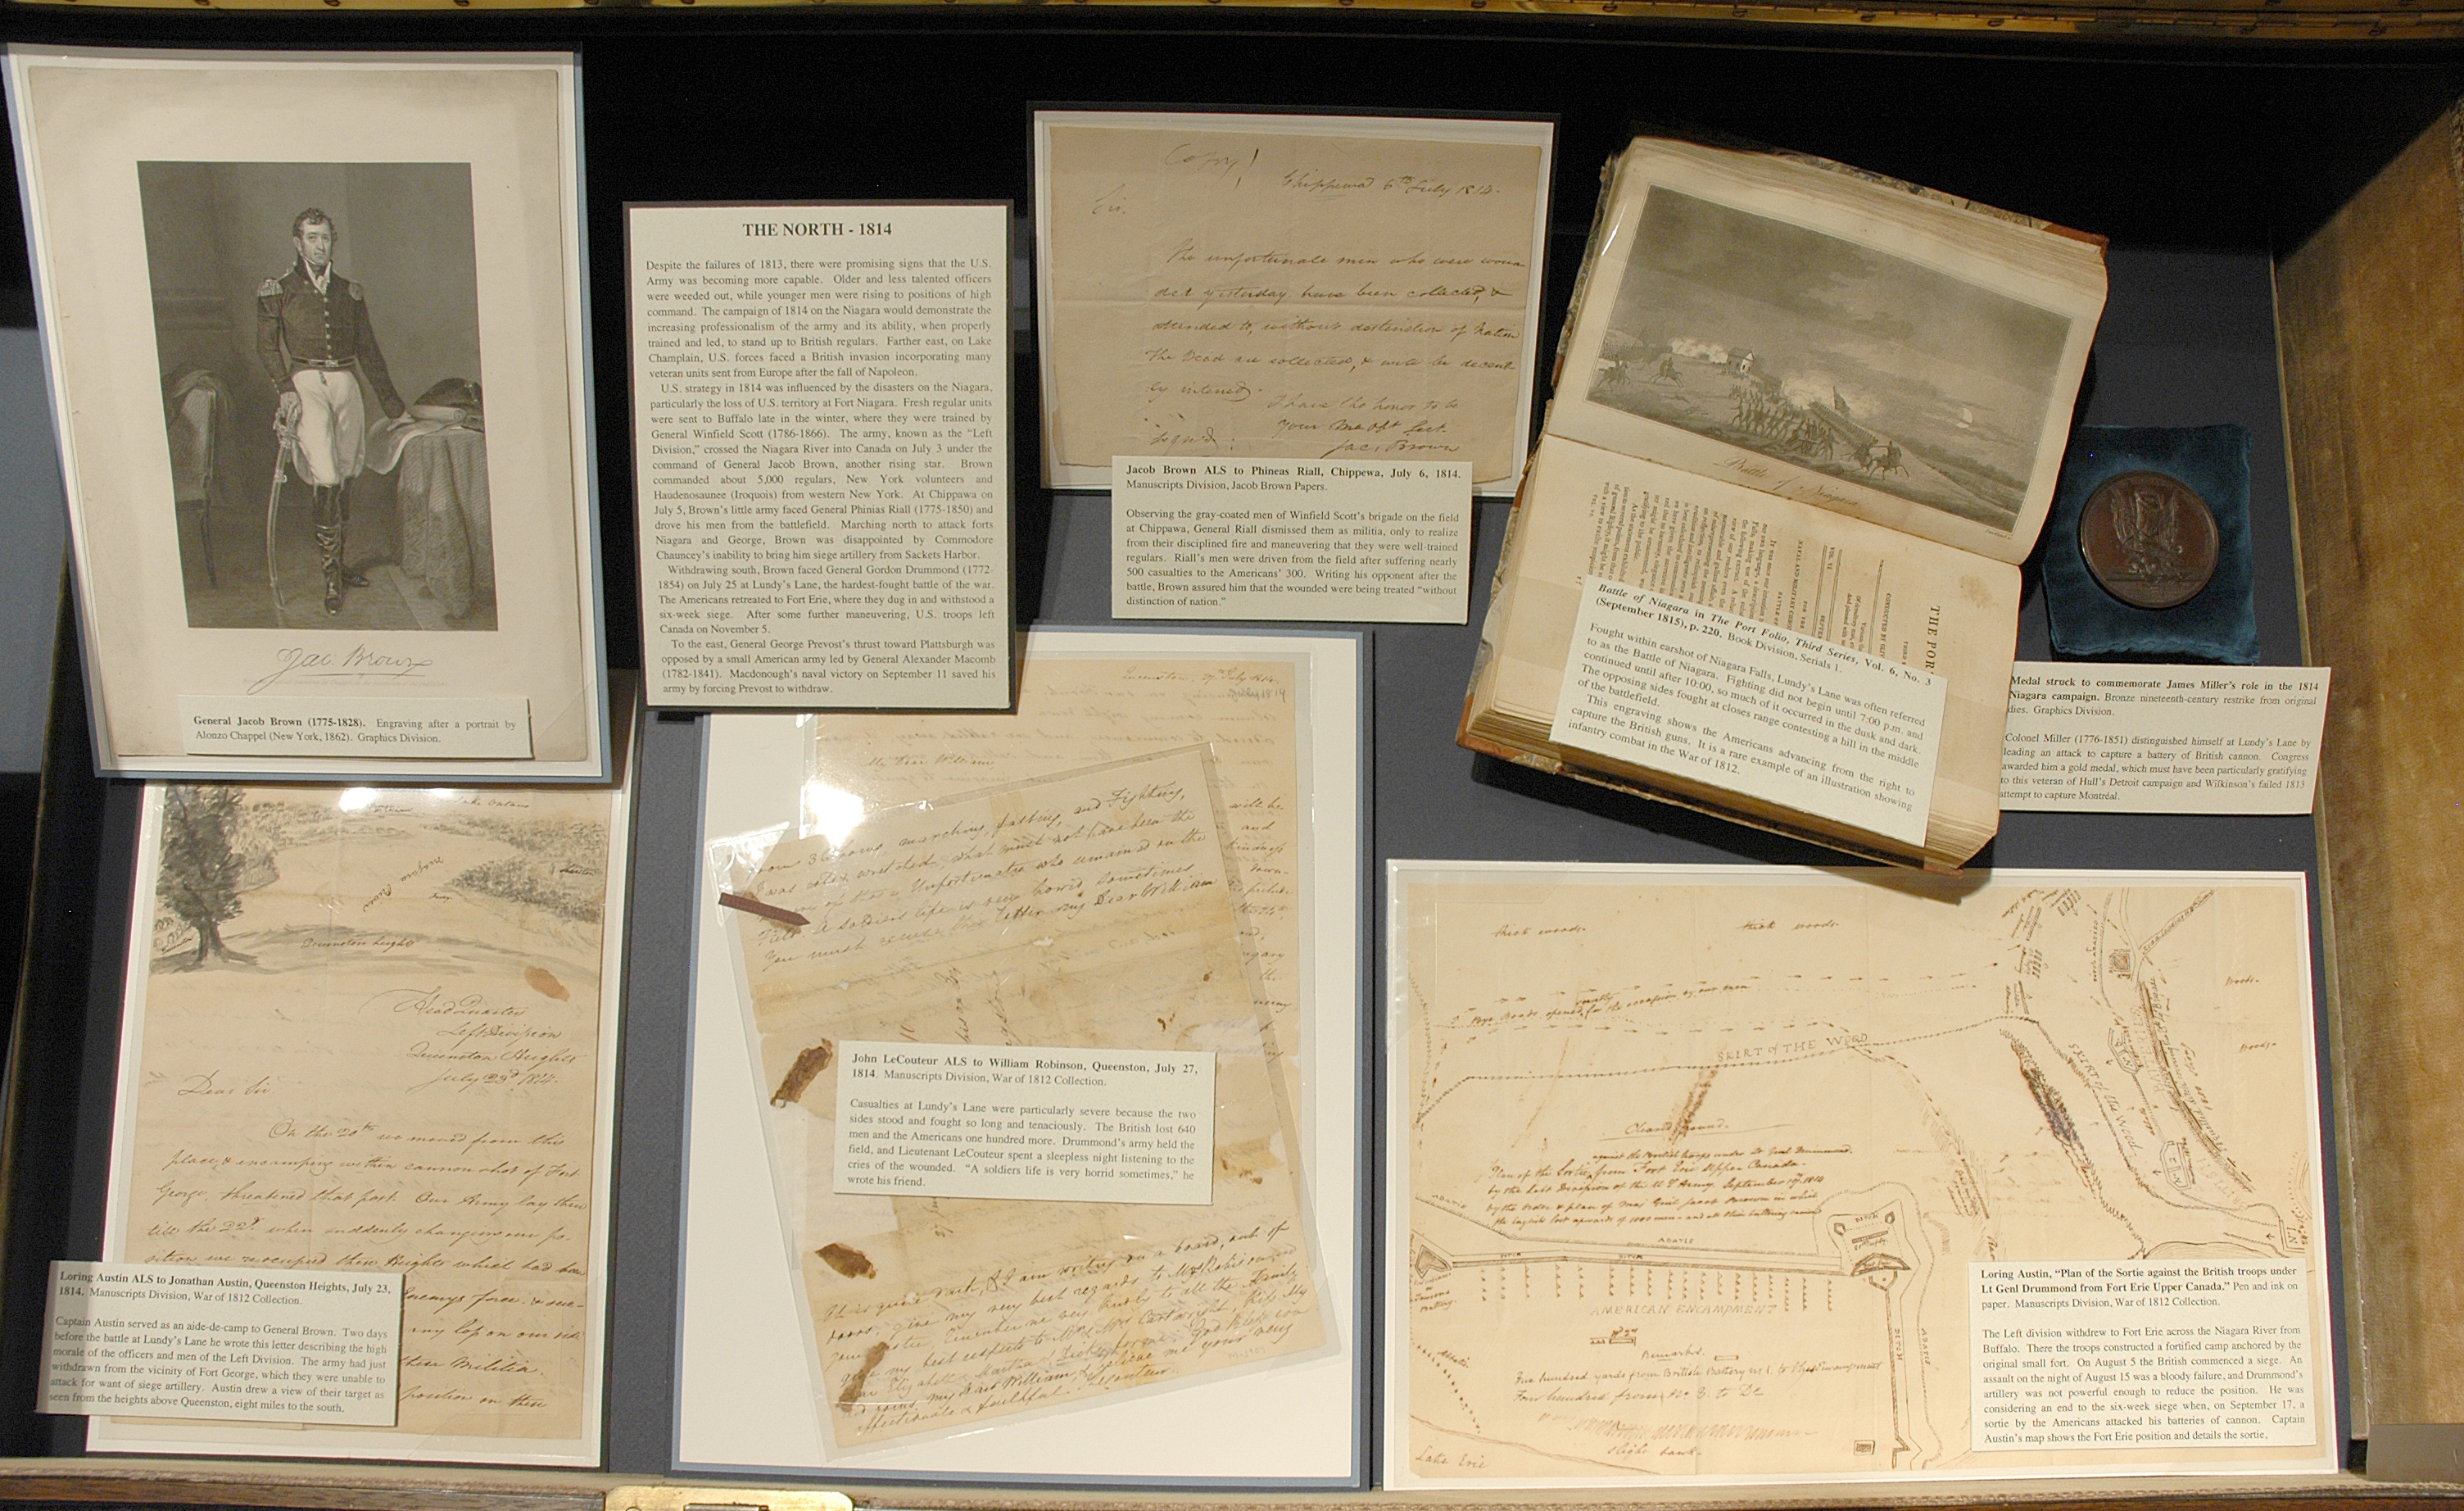 Jac: Brown
General Jacob Brown (1775-1828). Engraving after a portrait by
Alonzo Chappel (New York, 1862). Graphics Division.
THE NORTH - 1814
Despite the failures of 1813, there were promising signs that the U.S.
Army was becoming more capable. Older and less talented officers
were weeded out, while younger men were rising to positions of high
command. The campaign of 1814 on the Niagara would demonstrate the
increasing professionalism of the army and its ability, when properly
trained and led, to stand up to British regulars. Farther east, on Lake
Champlain, U.S. forces faced a British invasion incorporating many
veteran units sent from Europe after the fall of Napoleon.
U.S. strategy in 1814 was influenced by the disasters on the Niagara,
particularly the loss of U.S. territory at Fort Niagara. Fresh regular units
were sent to Buffalo late in the winter, where they were trained by
General Winfield Scott (1786-1866). The army, known as the "Left
Division," crossed the Niagara River into Canada on July 3 under the
command of General Jacob Brown, another rising star. Brown
commanded about 5,000 regulars, New York volunteers and
Haudenosaunee (Iroquois) from western New York. At Chippawa on
July 5, Brown's little army faced General Phinias Riall (1775-1850) and
drove his men from the battlefield. Marching north to attack forts
Niagara and George, Brown was disappointed by Commodore
Chauncey's inability to bring him siege artillery from Sackets Harbor.
Withdrawing south, Brown faced General Gordon Drummond (1772-
1854) on July 25 at Lundy's Lane, the hardest-fought battle of the war.
The Americans retreated to Fort Erie, where they dug in and withstood a
six-week siege. After some further maneuvering, U.S. troops left
Canada on November 5.
To the east, General George Prevost's thrust toward Plattsburgh was
opposed by a small American army led by General Alexander Macomb
(1782-1841). Macdonough's naval victory on September 11 saved his
army by forcing Prevost to withdraw.
Copy
Chippewa 6th July 1814.
Sir.
The unfortunate men who were woun
ded yesterday have been collected, &
attended to, without distinction of Nation
The Dead are collected, & will be decent
ly intered.
I have the honor to be
Your Mo Obt Sert.
Signd:
Jac: Brown
Jacob Brown ALS to Phineas Riall, Chippewa, July 6, 1814.
Manuscripts Division, Jacob Brown Papers.
Observing the gray-coated men of Winfield Scott's brigade on the field
at Chippawa, General Riall dismissed them as militia, only to realize
from their disciplined fire and maneuvering that they were well-trained
regulars. Riall's men were driven from the field after suffering nearly
500 casualties to the Americans' 300. Writing his opponent after the
battle, Brown assured him that the wounded were being treated "without
distinction of nation."
Battle of Niagara
THE POR
Battle of Niagara in The Port Folio, Third Series, Vol. 6, No. 3
(September 1815), p. 220. Book Division, Serials 1.
Fought within earshot of Niagara Falls, Lundy's Lane was often referred
to as the Battle of Niagara. Fighting did not begin until 7:00 p.m. and
continued until after 10:00, so much of it occurred in the dusk and dark.
The opposing sides fought at closes range contesting a hill in the middle
of the battlefield.
This engraving shows the Americans advancing from the right to
capture the British guns. It is a rare example of an illustration showing
infantry combat in the War of 1812.
Medal struck to commemorate James Miller's role in the 1814
Niagara campaign. Bronze nineteenth-century restrike from original
dies. Graphics Division.
Colonel Miller (1776-1851) distinguished himself at Lundy's Lane by
leading an attack to capture a battery of British cannon. Congress
awarded him a gold medal, which must have been particularly gratifying
to this veteran of Hull's Detroit campaign and Wilkinson's failed 1813
attempt to capture Montréal.
Niagara River
Queenston heights
Head Quarters
Left Division
Queenston Heights
July 23d 1814.
Dear Sir
On the 20th we moved from this
place, & encamping within cannon shot of Fort
George, threatened that post. Our Army lay there
till the 22d. when suddenly changing our po-
sition we reoccupied these Heights which had been
Enemys force
any loss on our side
these Militia.
position on these
Loring Austin ALS to Jonathan Austin, Queenston Heights, July 23,
1814. Manuscripts Division, War of 1812 Collection.
Captain Austin served as an aide-de-camp to General Brown. Two days
before the battle at Lundy's Lane he wrote this letter describing the high
morale of the officers and men of the Left Division. The army had just
withdrawn from the vicinity of Fort George, which they were unable to
attack for want of siege artillery. Austin drew a view of their target as
seen from the heights above Queenston, eight miles to the south.
Queenston, 27th July 1814.
My Dear William
marching, fasting, and Fighting,
I was not wrested, what must not have been the
of the Unfortunates who remained on the
Field. A soldiers life is very horrid sometimes
You must excuse this letter my Dear William
John LeCouteur ALS to William Robinson, Queenston, July 27,
1814. Manuscripts Division, War of 1812 Collection.
Casualties at Lundy's Lane were particularly severe because the two
sides stood and fought so long and tenaciously. The British lost 640
men and the Americans one hundred more. Drummond's army held the
field, and Lieutenant LeCouteur spent a sleepless night listening to the
cries of the wounded. "A soldiers life is very horrid sometimes," he
wrote his friend.
It is quite dark, & I am writing on a board, out of
doors. give my very best regards to Mrs Robinson, and
your Sister. Remember me very kindly to all the Family
give my best respects to Mr & Mrs Cartwright, Kiss my
Dear Elizabeth & Martha God bless you
my Dear William, & believe me your very
affectionate & faithful LeCouteur.
thick woods.
thick woods.
Roads opened for the occasion by our men
SKIRT OF THE WOOD
woods.
woods.
SKIRT of the Wood
Cleard Ground.
against the British troops under Lt Genl Drummond.
Plan of the Sortie from Fort Erie Upper Canada.
by the Left Division of the U S Army. September 17th 1814
by the order & plan of Maj Genl Jacob Brown in which
the English lost upwards of 1000 men - and all their battering cannon
ABATIS
ABATIS
DITCH
DITCH
DITCH
AMERICAN ENCAMPMENT
DITCH
ABATIS
Remarks.
Five hundred yards from British Battery No 1. to the Encampment
Four hundred from No 3. to Do
slight bank.
Lake Erie
Loring Austin, "Plan of the Sortie against the British troops under
Lt Genl Drummond from Fort Erie Upper Canada." Pen and ink on
paper. Manuscripts Division, War of 1812 Collection.
The Left division withdrew to Fort Erie across the Niagara River from
Buffalo. There the troops constructed a fortified camp anchored by the
original small fort. On August 5 the British commenced a siege. An
assault on the night of August 15 was a bloody failure, and Drummond's
artillery was not powerful enough to reduce the position. He was
considering an end to the six-week siege when, on September 17, a
sortie by the Americans attacked his batteries of cannon. Captain
Austin's map shows the Fort Erie position and details the sortie.